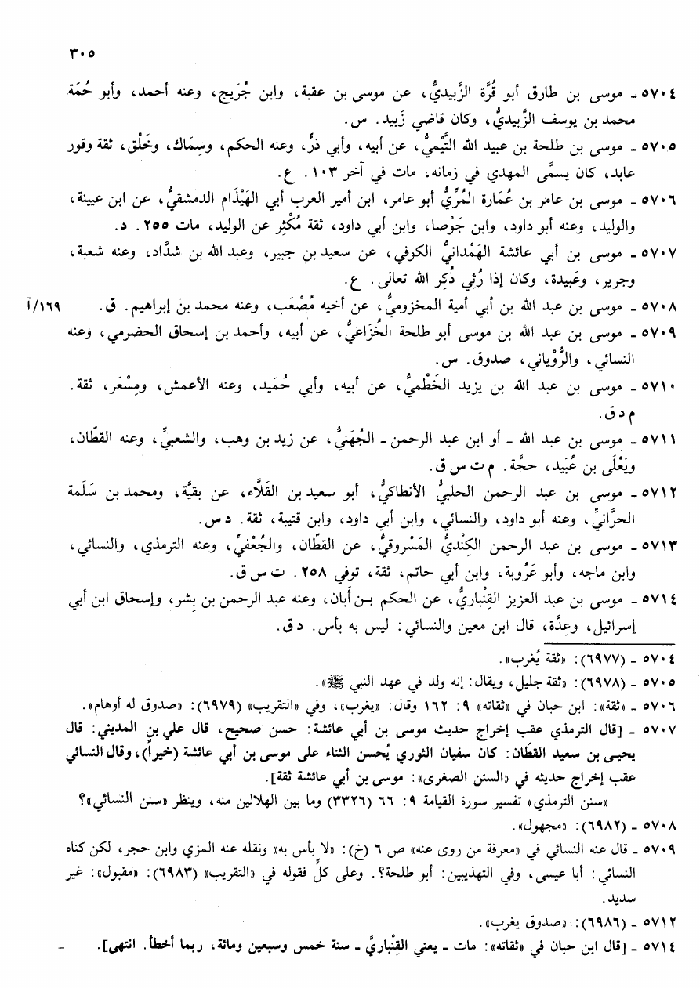 ٣٠٥
٥٧٠٤ ـ موسى بن طارق أبو قُرَّة الزَّبِيديُّ، عن موسى بن عقبة، وابن جُرَيج، وعنه أحمد، وأبو حُمَة
محمد بن يوسف الزَّبِيديُّ، وكان قاضي زَبِيد. س.
٥٧٠٥ ـ موسى بن طلحة بن عبيد الله التَّيْميُّ، عن أبيه، وأبي ذرٍّ، وعنه الحكم، وسِمَاك، وخَلْق، ثقة وقور
عابد، كان يسمَّى المهدي في زمانه، مات في آخر ١٠٣. ع.
٥٧٠٦ ـ موسى بن عامر بن عُمَارة المُرِّيُّ أبو عامر، ابن أمير العرب أبي الهَيْذَام الدمشقيُّ، عن ابن عيينة،
والوليد، وعنه أبو داود، وابن جَوْصا، وابن أبي داود، ثقة مُكْثِر عن الوليد، مات ٢٥٥. د.
٥٧٠٧ ـ موسى بن أبي عائشة الهَمْدانيُّ الكوفي، عن سعيد بن جبير، وعبد الله بن شدَّاد، وعنه شعبة،
وجرير، وعَبِيدة، وكان إذا رُئي ذُكِر الله تعالى. ع.
٥٧٠٨ ـ موسى بن عبد الله بن أبي أمية المخزوميُّ، عن أخيه مُصْعَب، وعنه محمد بن إبراهيم. ق. ١٦٩/آ
٥٧٠٩ ـ موسى بن عبد الله بن موسى أبو طلحة الخُزَاعيُّ، عن أبيه، وأحمد بن إسحاق الحضرمي، وعنه
النسائي، والرُّوْياني، صدوق. س.
٥٧١٠ ـ موسى بن عبد الله بن يزيد الخَطْميُّ، عن أبيه، وأبي حُمَيد، وعنه الأعمش، ومِسْعَر، ثقة.
م د ق.
٥٧١١ ـ موسى بن عبد الله ـ أو ابن عبد الرحمن ـ الجُهَنيُّ، عن زيد بن وهب، والشعبيِّ، وعنه القطّان،
ويَعْلَى بن عُبَيد، حجَّة. م ت س ق.
٥٧١٢ ـ موسى بن عبد الرحمن الحلبيُّ الأنطاكيُّ، أبو سعيد بن القَلَّاء، عن بقيَّة، ومحمد بن سَلَمة
الحرَّانيِّ، وعنه أبو داود، والنسائي، وابن أبي داود، وابن قتيبة، ثقة. د س.
٥٧١٣ ـ موسى بن عبد الرحمن الكِنْديُّ المَسْروقيُّ، عن القطَّان، والجُعْفيِّ، وعنه الترمذي، والنسائي،
وابن ماجه، وأبو عَرُوبة، وابن أبي حاتم، ثقة، توفي ٢٥٨. ت س ق.
٥٧١٤ ـ موسى بن عبد العزيز القِنْباريُّ، عن الحكم بن أبان، وعنه عبد الرحمن بن بِشر، وإسحاق ابن أبي
إسرائيل، وعدَّة، قال ابن معين والنسائي: ليس به بأس. د ق.
٥٧٠٤ ـ (٦٩٧٧): «ثقة يُغرب».
٥٧٠٥ ـ (٦٩٧٨): «ثقة جليل، ويقال: إنه ولد في عهد النبي ﷺ».
٥٧٠٦ ـ «ثقة»: ابن حبان في «ثقاته» ٩: ١٦٢ وقال: «يغرب»، وفي «التقريب» (٦٩٧٩): «صدوق له أوهام».
٥٧٠٧ ـ [قال الترمذي عقب إخراج حديث موسى بن أبي عائشة: حسن صحيح، قال علي بن المديني: قال
يحيى بن سعيد القطان: كان سفيان الثوري يُحسن الثناء على موسى بن أبي عائشة (خيراً)، وقال النسائي
عقب إخراج حديثه في «السنن الصغرى»: موسى بن أبي عائشة ثقة].
«سنن الترمذي» تفسير سورة القيامة ٩: ٦٦ (٣٣٢٦) وما بين الهلالين منه، وينظر «سنن النسائي»؟
٥٧٠٨ ـ (٦٩٨٢): «مجهول».
٥٧٠٩ ـ قال عنه النسائي في «معرفة من روى عنه» ص ٦ (خ): «لا بأس به» ونقله عنه المزي وابن حجر، لكن كناه
النسائي: أبا عيسى، وفي التهذيبين: أبو طلحة؟. وعلى كلٍّ فقوله في «التقريب» (٦٩٨٣): «مقبول»: غير
سديد.
٥٧١٢ ـ (٦٩٨٦): «صدوق يغرب».
٥٧١٤ ـ [قال ابن حبان في «ثقاته»: مات ـ يعني القِنْباريَّ ـ سنة خمس وسبعين ومائة، ربما أخطأ. انتهى].